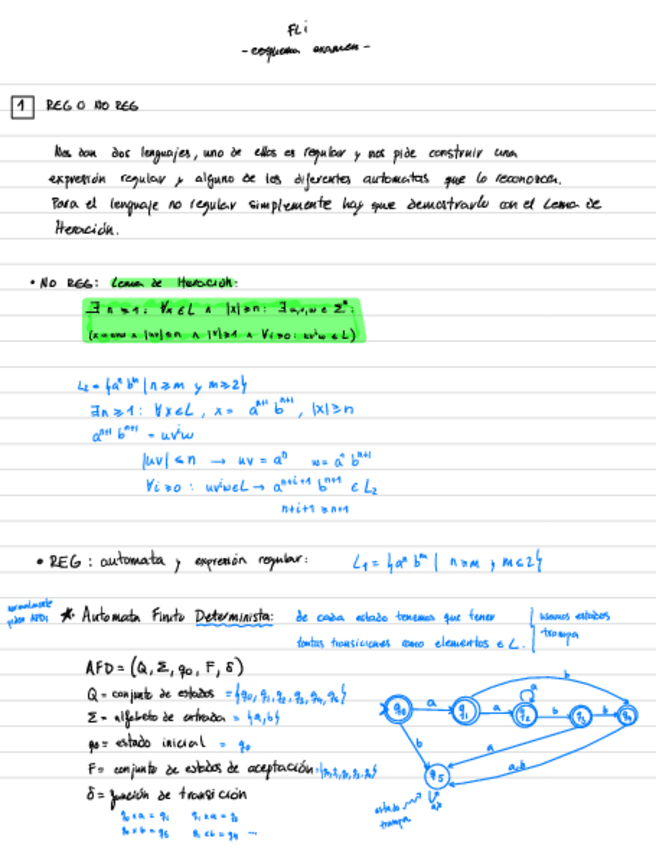 FLi
- esquema examen -
1 REG O NO REG
Nos dan dos lenguajes, uno de ellos es regular y nos pide construir una
expresión regular y alguno de los diferentes automatas que lo reconozcan.
Para el lenguaje no regular simplemente hay que demostrarlo con el Lema de
Iteración.
• NO REG: Lema de Iteración:
∃ n ≥ 1: ∀x ∈ L ∧ |x| ≥ n: ∃ u,v,w ∈ Σ*:
(x = uvw ∧ |uv| ≤ n ∧ |v| ≥ 1 ∧ ∀i ≥ 0: uvⁱw ∈ L)
L₂ = {aⁿ bᵐ | n ≥ m y m ≥ 2}
∃n ≥ 1: ∀x ∈ L, x = aⁿ⁺¹ bⁿ⁺¹, |x| ≥ n
aⁿ⁺¹ bⁿ⁺¹ = uvⁱw
|uv| ≤ n → uv = aⁿ
∀i ≥ 0: uvⁱw ∈ L → aⁿ⁺ⁱ⁺¹ bⁿ⁺¹ ∈ L₂
n+i+1 ≥ n+1
• REG: automata y expresión regular: L₁ = {aⁿ bᵐ | n ≥ m y m ≤ 2}
normalmente piden AFDs
* Automata Finito Determinista: de cada estado tenemos que tener
tantas transiciones como elementos ∈ L. usamos estados trampa
AFD = (Q, Σ, q₀, F, δ)
Q = conjunto de estados = {q₀, q₁, q₂, q₃, q₄, q₅}
Σ = alfabeto de entrada = {a,b}
q₀ = estado inicial = q₀
F = conjunto de estados de aceptación:
δ = función de transición
q₀ x a = q₁ q₁ x a = q₂
q₀ x b = q₅ q₁ x b = q₄ ...
q₀ a q₁ a q₂ b q₃ b q₄
a
b
b
a
a,b
q₅
estado trampa